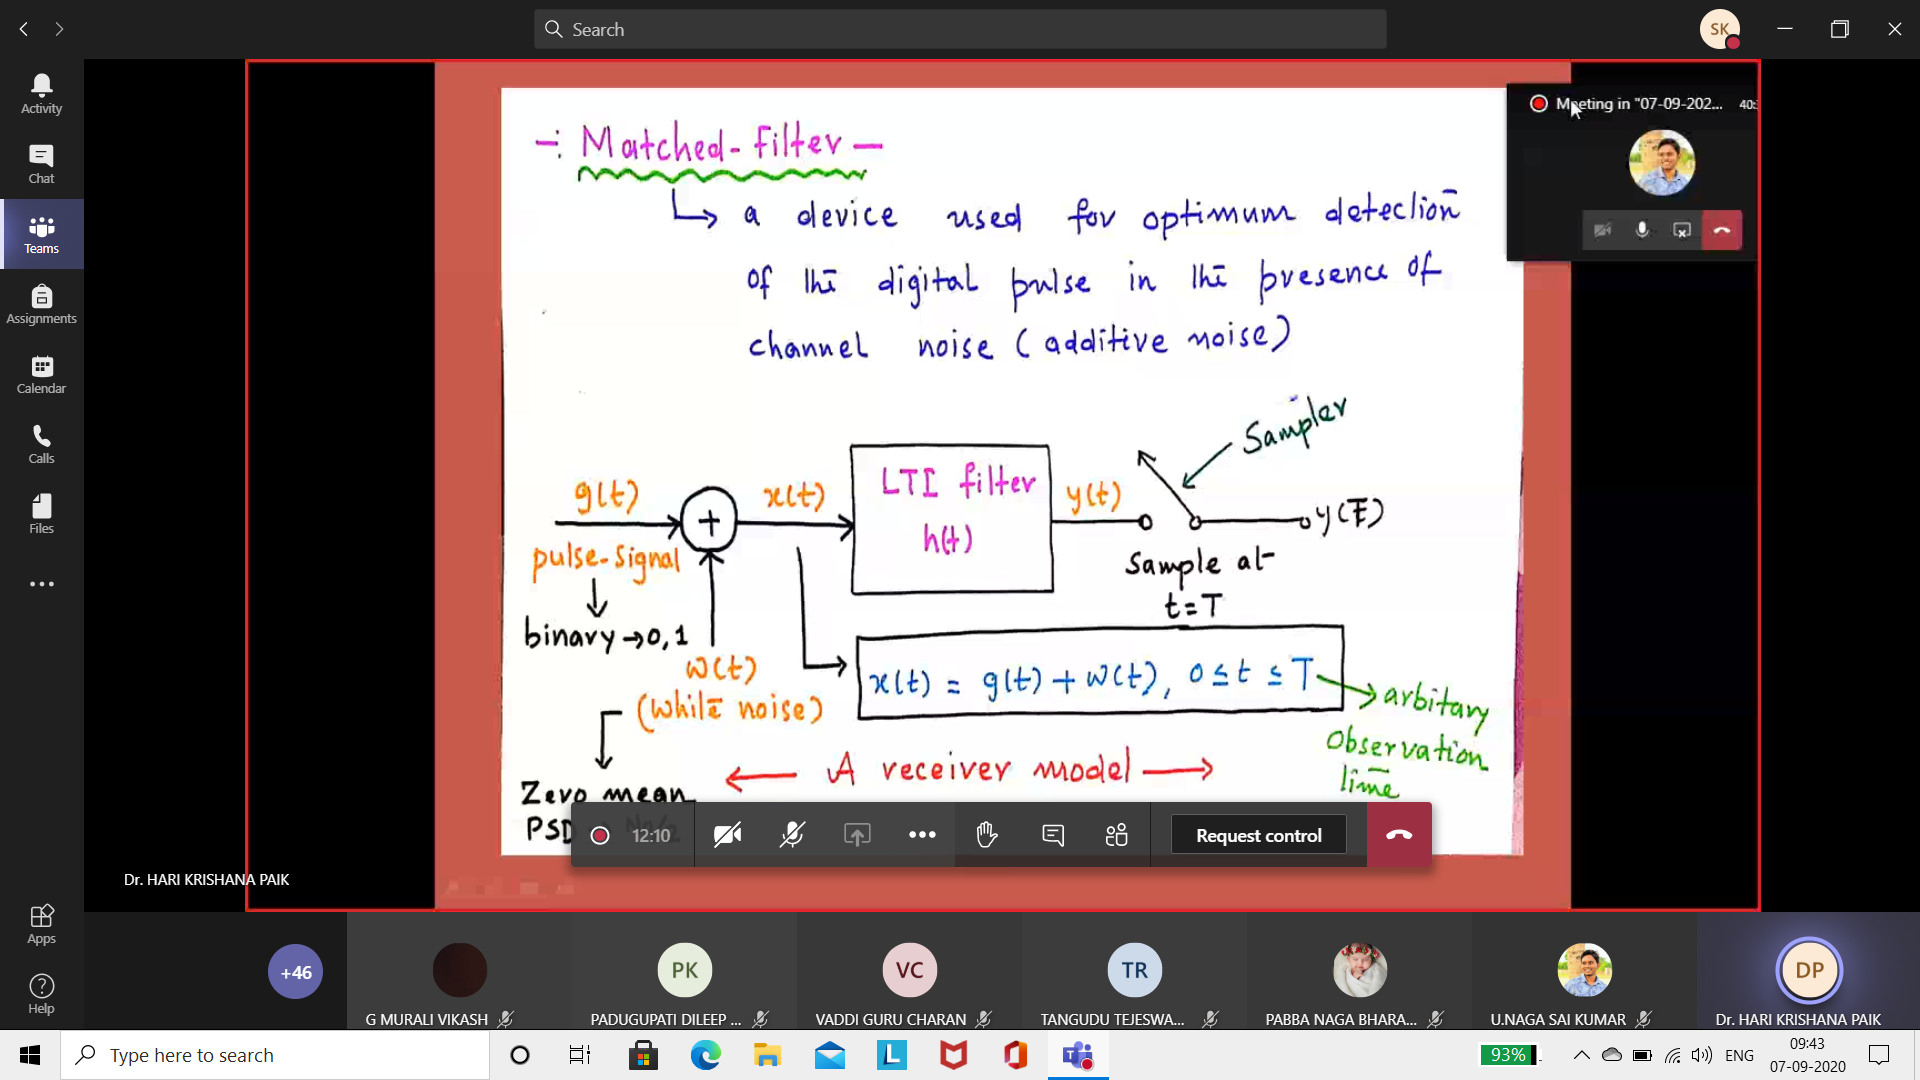 Search
SK
Activity
Chat
Teams
Assignments
Calendar
Calls
Files
Apps
Help
Meeting in "07-09-202...
-: Matched-Filter -
a device used for optimum detection
of the digital pulse in the presence of
channel noise (additive noise)
Sampler
g(t)
+
x(t)
LTI filter
h(t)
y(t)
y(T)
pulse-signal
Sample at
t=T
binary →0,1
w(t)
(white noise)
x(t) = g(t) + w(t), 0 ≤ t ≤ T
arbitary
Observation
time
A receiver model
Zero mean
PSD
12:10
Request control
Dr. HARI KRISHANA PAIK
+46
PK
VC
TR
DP
G MURALI VIKASH
PADUGUPATI DILEEP ...
VADDI GURU CHARAN
TANGUDU TEJESWA...
PABBA NAGA BHARA...
U.NAGA SAI KUMAR
Dr. HARI KRISHANA PAIK
Type here to search
L
93%
ENG
09:43
07-09-2020